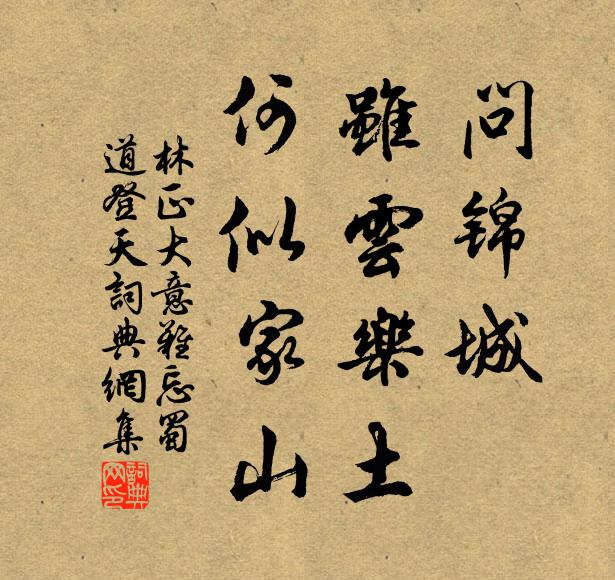 問錦城
雖雲樂土
何似家山
林正大意難忘蜀
道登天詞典網集
詞典
网印